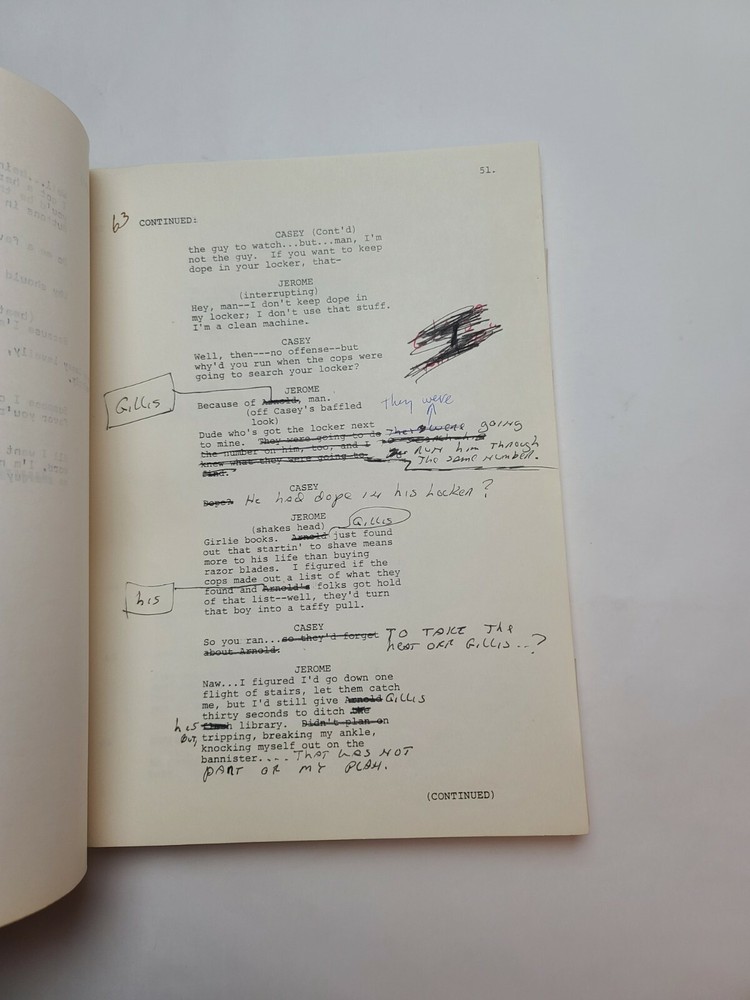 51.
63 CONTINUED:
CASEY (Cont'd)
the guy to watch...but...man, I'm
not the guy. If you want to keep
dope in your locker, that-
JEROME
(interrupting)
Hey, man--I don't keep dope in
my locker; I don't use that stuff.
I'm a clean machine.
CASEY
Well, then---no offense--but
why'd you run when the cops were
going to search your locker?
JEROME
Gillis
Because of Arnold, man.
(off Casey's baffled
look)
They were
Dude who's got the locker next
They were going
to mine. They were going to do
the number on him, too, and I
run him through
knew what they were going to
the same number.
find.
CASEY
Dope? He had dope in his locker?
JEROME
(shakes head) Gillis
Girlie books. Arnold just found
out that startin' to shave means
more to his life than buying
razor blades. I figured if the
cops made out a list of what they
his
found and Arnold's folks got hold
of that list--well, they'd turn
that boy into a taffy pull.
CASEY
So you ran...so they'd forget TO TAKE The
about Arnold. heat OFF GILLIS...?
JEROME
Naw...I figured I'd go down one
flight of stairs, let them catch
me, but I'd still give Arnold GILLIS
thirty seconds to ditch
his library. Didn't plan on
But, tripping, breaking my ankle,
knocking myself out on the
bannister.... THAT WAS NOT
PART OF MY PLAN.
(CONTINUED)